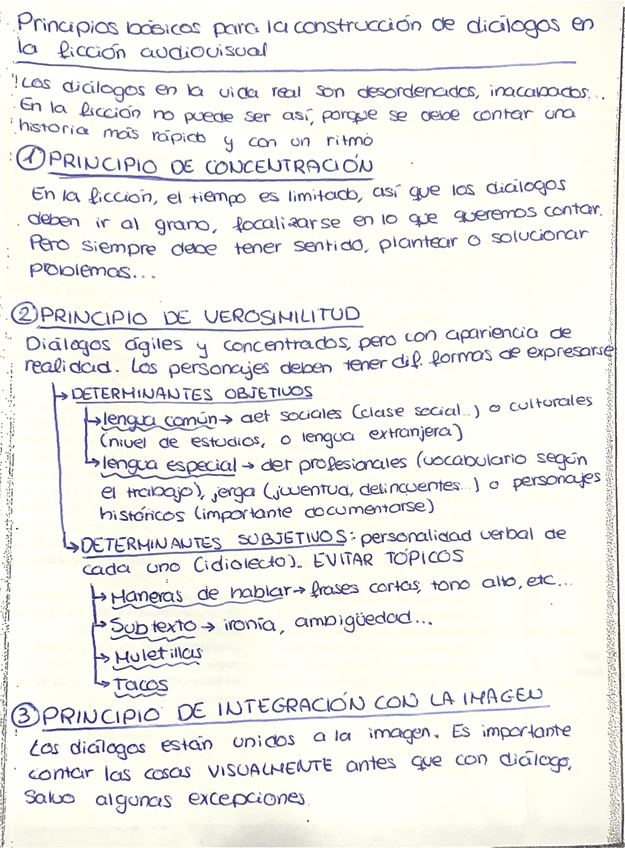 Principios básicos para la construcción de diálogos en
la ficción audiovisual
! Los diálogos en la vida real son desordenados, inacabados...
En la ficción no puede ser así, porque se debe contar una
historia más rápido y con un ritmo
① PRINCIPIO DE CONCENTRACIÓN
En la ficción, el tiempo es limitado, así que los diálogos
deben ir al grano, focalizarse en lo que queremos contar.
Pero siempre debe tener sentido, plantear o solucionar
problemas...
② PRINCIPIO DE VEROSIMILITUD
Diálogos ágiles y concentrados, pero con apariencia de
realidad. Los personajes deben tener dif. formas de expresarse
→ DETERMINANTES OBJETIVOS
→ lengua común → det sociales (clase social...) o culturales
(nivel de estudios, o lengua extranjera)
→ lengua especial → det profesionales (vocabulario según
el trabajo), jerga (juventud, delincuentes...) o personajes
históricos (importante documentarse)
→ DETERMINANTES SUBJETIVOS: personalidad verbal de
cada uno (idiolecto). EVITAR TÓPICOS
→ Maneras de hablar → frases cortas, tono alto, etc...
→ Subtexto → ironía, ambigüedad...
→ Muletillas
→ Tacos
③ PRINCIPIO DE INTEGRACIÓN CON LA IMAGEN
Los diálogos están unidos a la imagen. Es importante
contar las cosas VISUALMENTE antes que con diálogo,
salvo algunas excepciones.